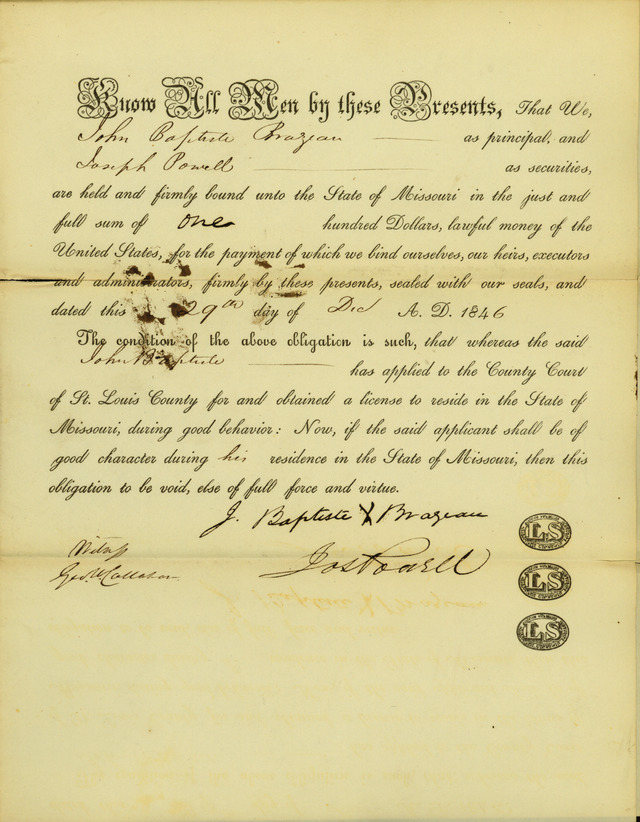 Know All Men by these Presents, That We,
John Baptiste Brazeau as principal, and
Joseph Powell as securities,
are held and firmly bound unto the State of Missouri in the just and
full sum of one hundred Dollars, lawful money of the
United States, for the payment of which we bind ourselves, our heirs, executors
and administrators, firmly by these presents, sealed with our seals, and
dated this 29th day of Dec A. D. 1846
The condition of the above obligation is such, that whereas the said
John Baptiste has applied to the County Court
of St. Louis County for and obtained a license to reside in the State of
Missouri, during good behavior: Now, if the said applicant shall be of
good character during his residence in the State of Missouri, then this
obligation to be void, else of full force and virtue.
J. Baptiste X Brazeau
LS
Witness
Jos Powell
Geo. W Callahan
LS
LS